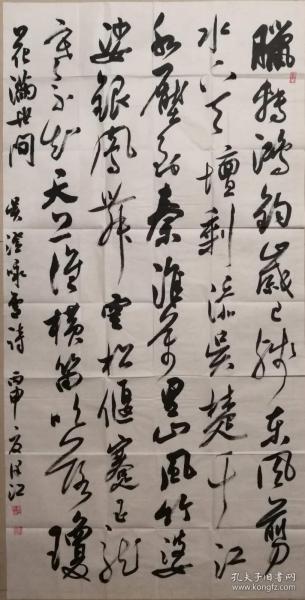 臘轉鴻鈞歲已殘東風剪
水下天壇剩添吳楚千江
水壓到秦淮萬里山風竹婆
娑銀鳳舞雲松偃蹇玉龍
寒不知天上誰橫笛吹落瓊
花滿世間 吳澄咏雪詩 丙申 江
孔夫子旧书网